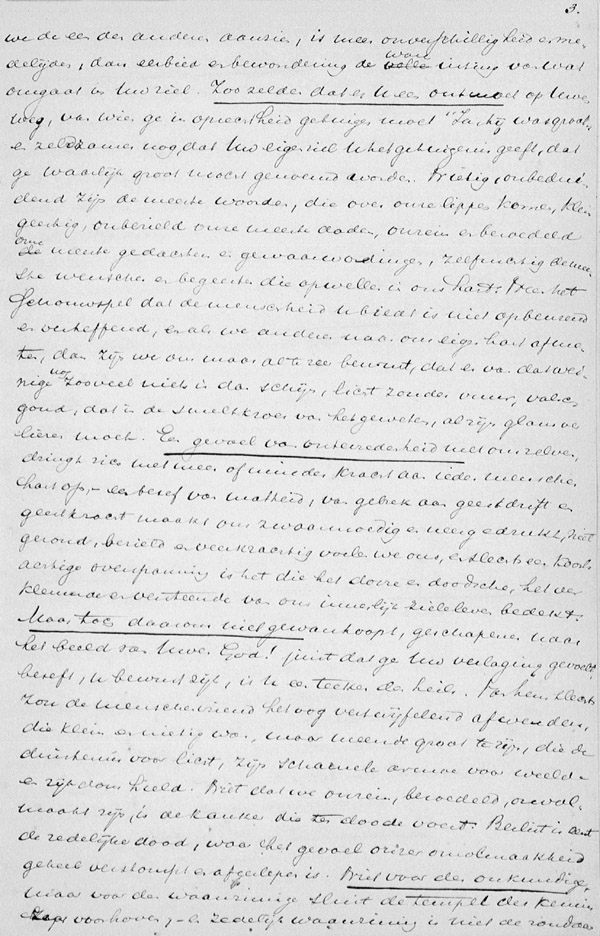 3.
we de een den anderen aanzien, is meer onverschilligheid en me-
delijden, dan eerbied en bewondering de waar inking van wat
omgaat in Uw ziel. Zoo zelden dat er U een ontmoet op Uwen
weg, van wien ge in oprechtheid getuigen moet "Ja, hij was groot,
en zeldzamer nog, dat Uw eigen ziel U het getuigenis geeft, dat
ge waarlijk groot moest genoemd worden. Nietig, onbedui-
dend zijn de meeste woorden, die over onze lippen komen, klein
geestig, onbezield onze meeste daden, onrein en bezoedeld
onze meeste gedachten en gewaarwordingen, zelfzuchtig de mees
ste wenschen en begeerten die opwellen in ons hart. Neen het
Schouwspel dat de menschheid U biedt is niet opbeurend
en verheffend, en als we anderen naar ons eigen hart afme-
ten, dan zijn we ons maar al te zeer bewust, dat er van dat wei-
nige nog zooveel niets is dan schijn, licht zonder vuur, valsch
goud, dat in de smeltkroes van het geweten, al zijn glans ver
liezen moet. Een gevoel van ontevredenheid met ons zelven,
dringt zich met meer of minder kracht aan ieder menschen
hart op, - een besef van matheid, van gebrek aan geestdrift en
geestkracht maakt ons zwaarmoedig en neergedrukt, niet
gezond, bezield en veerkrachtig voelen we ons, en slechts een koorts
aertige overspanning is het die het dorre en doodsche, het ver
kleumde en versteende van ons innerlijk zieleleven bedekt.
Maar toch daarom niet gewanhoopt, geschapenen naar
het beeld van Uwen God! juist dat ge Uw verlaging gevoelt
beseft, U bewust zijt, is U een teeken des heils. Van hen slechts
zou de menschenvriend het oog vertwijfelend afwenden,
die klein en nietig was, maar meende groot te zijn, die de
duisternis voor licht, zijn schamele armoe voor weelde
en rijkdom hield. Niet dat we onrein, bezoedeld, onvol-
maakt zijn, is de kanker die ten doode voert. Beslist is eerst
de zedelijke dood, waar het gevoel onzer onvolmaaktheid
geheel verstompt en afgesleten is. Niet voor den onkundige,
maar voor den waanzinnige sluit de tempel der kennis
zijn voorhoven, - en zedelijk waanzinnig is niet de zondaar